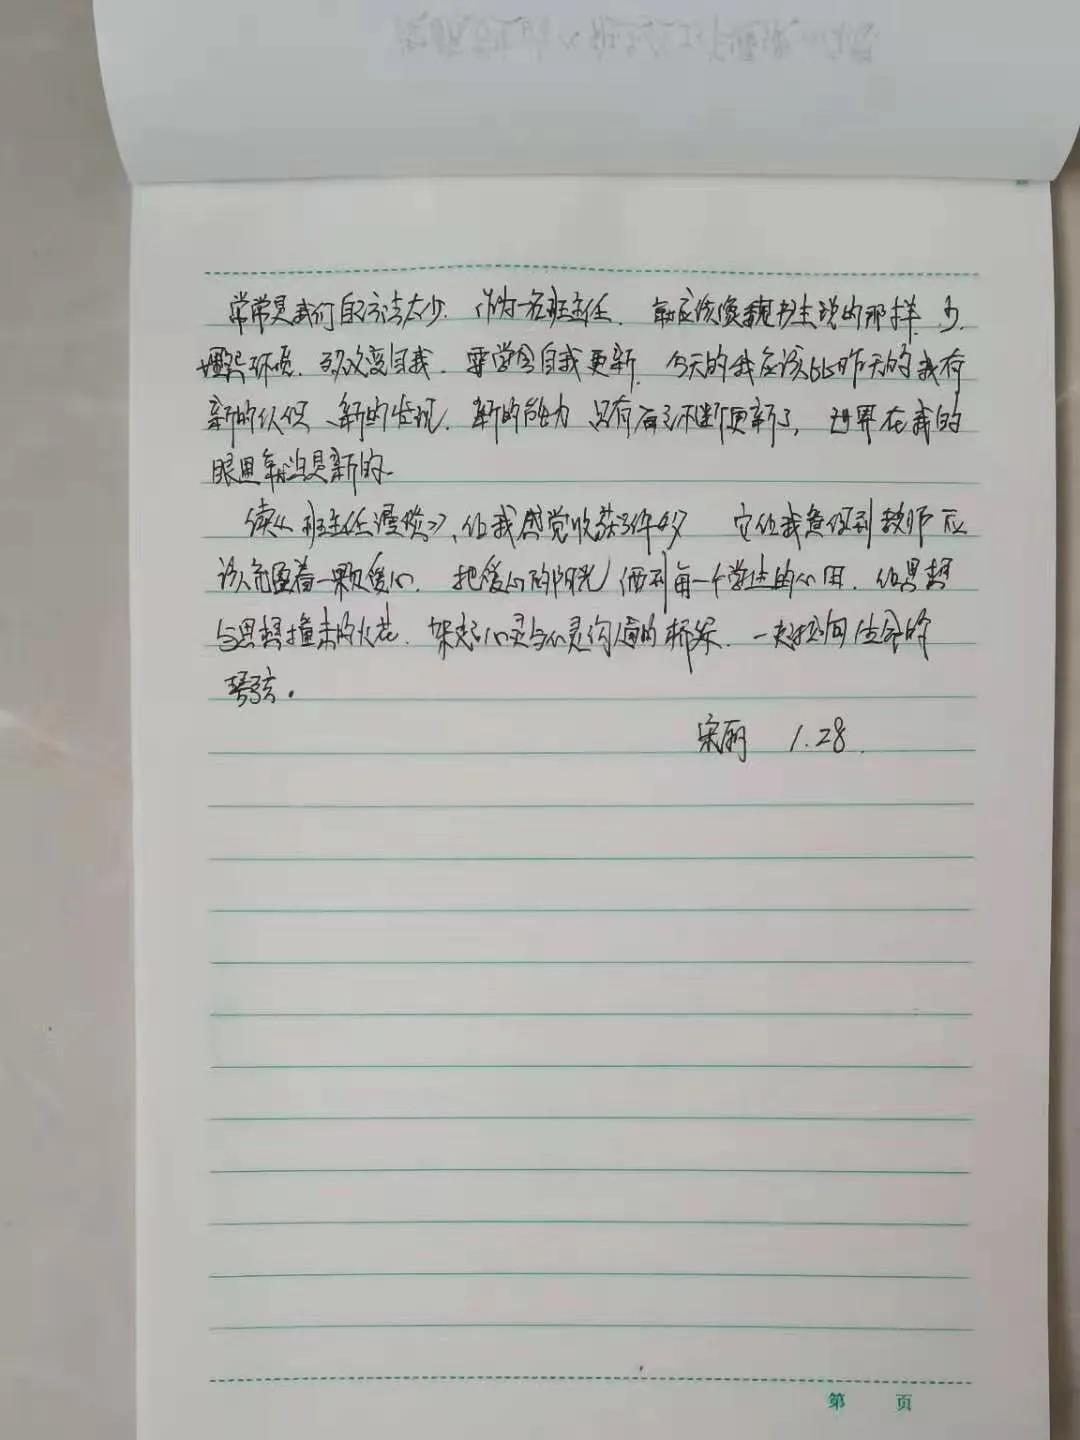 常常是我们自己方法太少. 作为一名班主任. 就应该像魏书生说的那样. 少
埋怨环境. 多改变自我. 要学会自我更新. 今天的我应该比昨天的我有
新的认识、新的发现. 新的能力 只有自己不断更新了, 世界在我的
眼里就当是新的.
读《班主任漫谈》, 让我感觉收获许多 它让我意识到教师应
该充盈着一颗爱心. 把爱心的阳光洒到每一个学生的心田. 让思想
与思想撞击的火花. 架起心灵与心灵沟通的桥梁. 一起拨响生命的
琴弦.
宋丽 1.28.
第 页